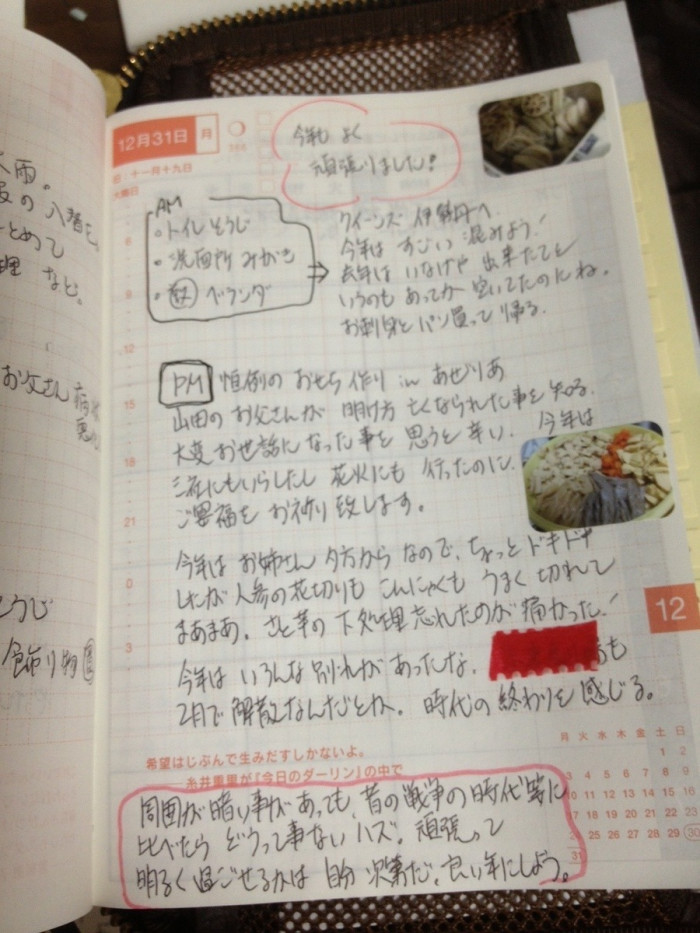 12月31日 月
旧:十一月十九日
大晦日
今年も よく
頑張りました!
AM
・トイレそうじ
・洗面所 みがき
・ベランダ
⇒
クイーンズ 伊勢丹へ.
今年は すごい 混みよう!
去年は いなげや 出来たてと
いうのも あってか 空いてたのにね.
お刺身と パン買って 帰る.
PM 恒例の おせち作り in あぜりあ
山田の お父さんが 明け方 亡くなられた事を 知る.
大変お世話になった事を 思うと 辛い. 今年は
にもいらしたし 花火にも 行ったのに.
ご冥福を お祈り 致します。
今年は お姉さん 夕方から なので、ちょっと ドキドキ
したが 人参の 花切りも こんにゃくも うまく 切れて
まあまあ. さと芋の 下処理 忘れたのが 痛かった!
今年は いろんな 別れが あったな.
も
2月で 解散なんだとか. 時代の 終わりを 感じる。
希望はじぶんで生みだすしかないよ。
——糸井重里が『今日のダーリン』の中で
周囲が 暗い事が あっても, 昔の 戦争の 時代 等に
比べたら どうって事ない ハズ. 頑張って
明るく 過ごせるかは 自分 次第だ. 良い年にしよう。
6
9
12
15
18
21
0
3
12
月 火 水 木 金 土 日
1 2
3 4 5 6 7 8 9
10 11 12 13 14 15 16
17 18 19 20 21 22 23
24 25 26 27 28 29 30
31
大雨。
の 入替を.
まとめて
理 など。
お父さん 病
そうじ
飾り物